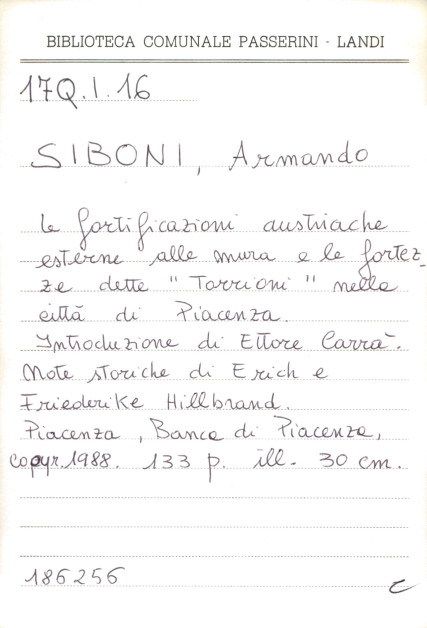 BIBLIOTECA COMUNALE PASSERINI - LANDI
17Q.I.16
SIBONI, Armando
Le fortificazioni austriache
esterne alle mura e le fortez-
ze dette "Torrioni" nella
città di Piacenza.
Introduzione di Ettore Carrà.
Note storiche di Erich e
Friederike Hillbrand.
Piacenza, Banca di Piacenza,
copyr. 1988. 133 p. ill. 30 cm.
186256